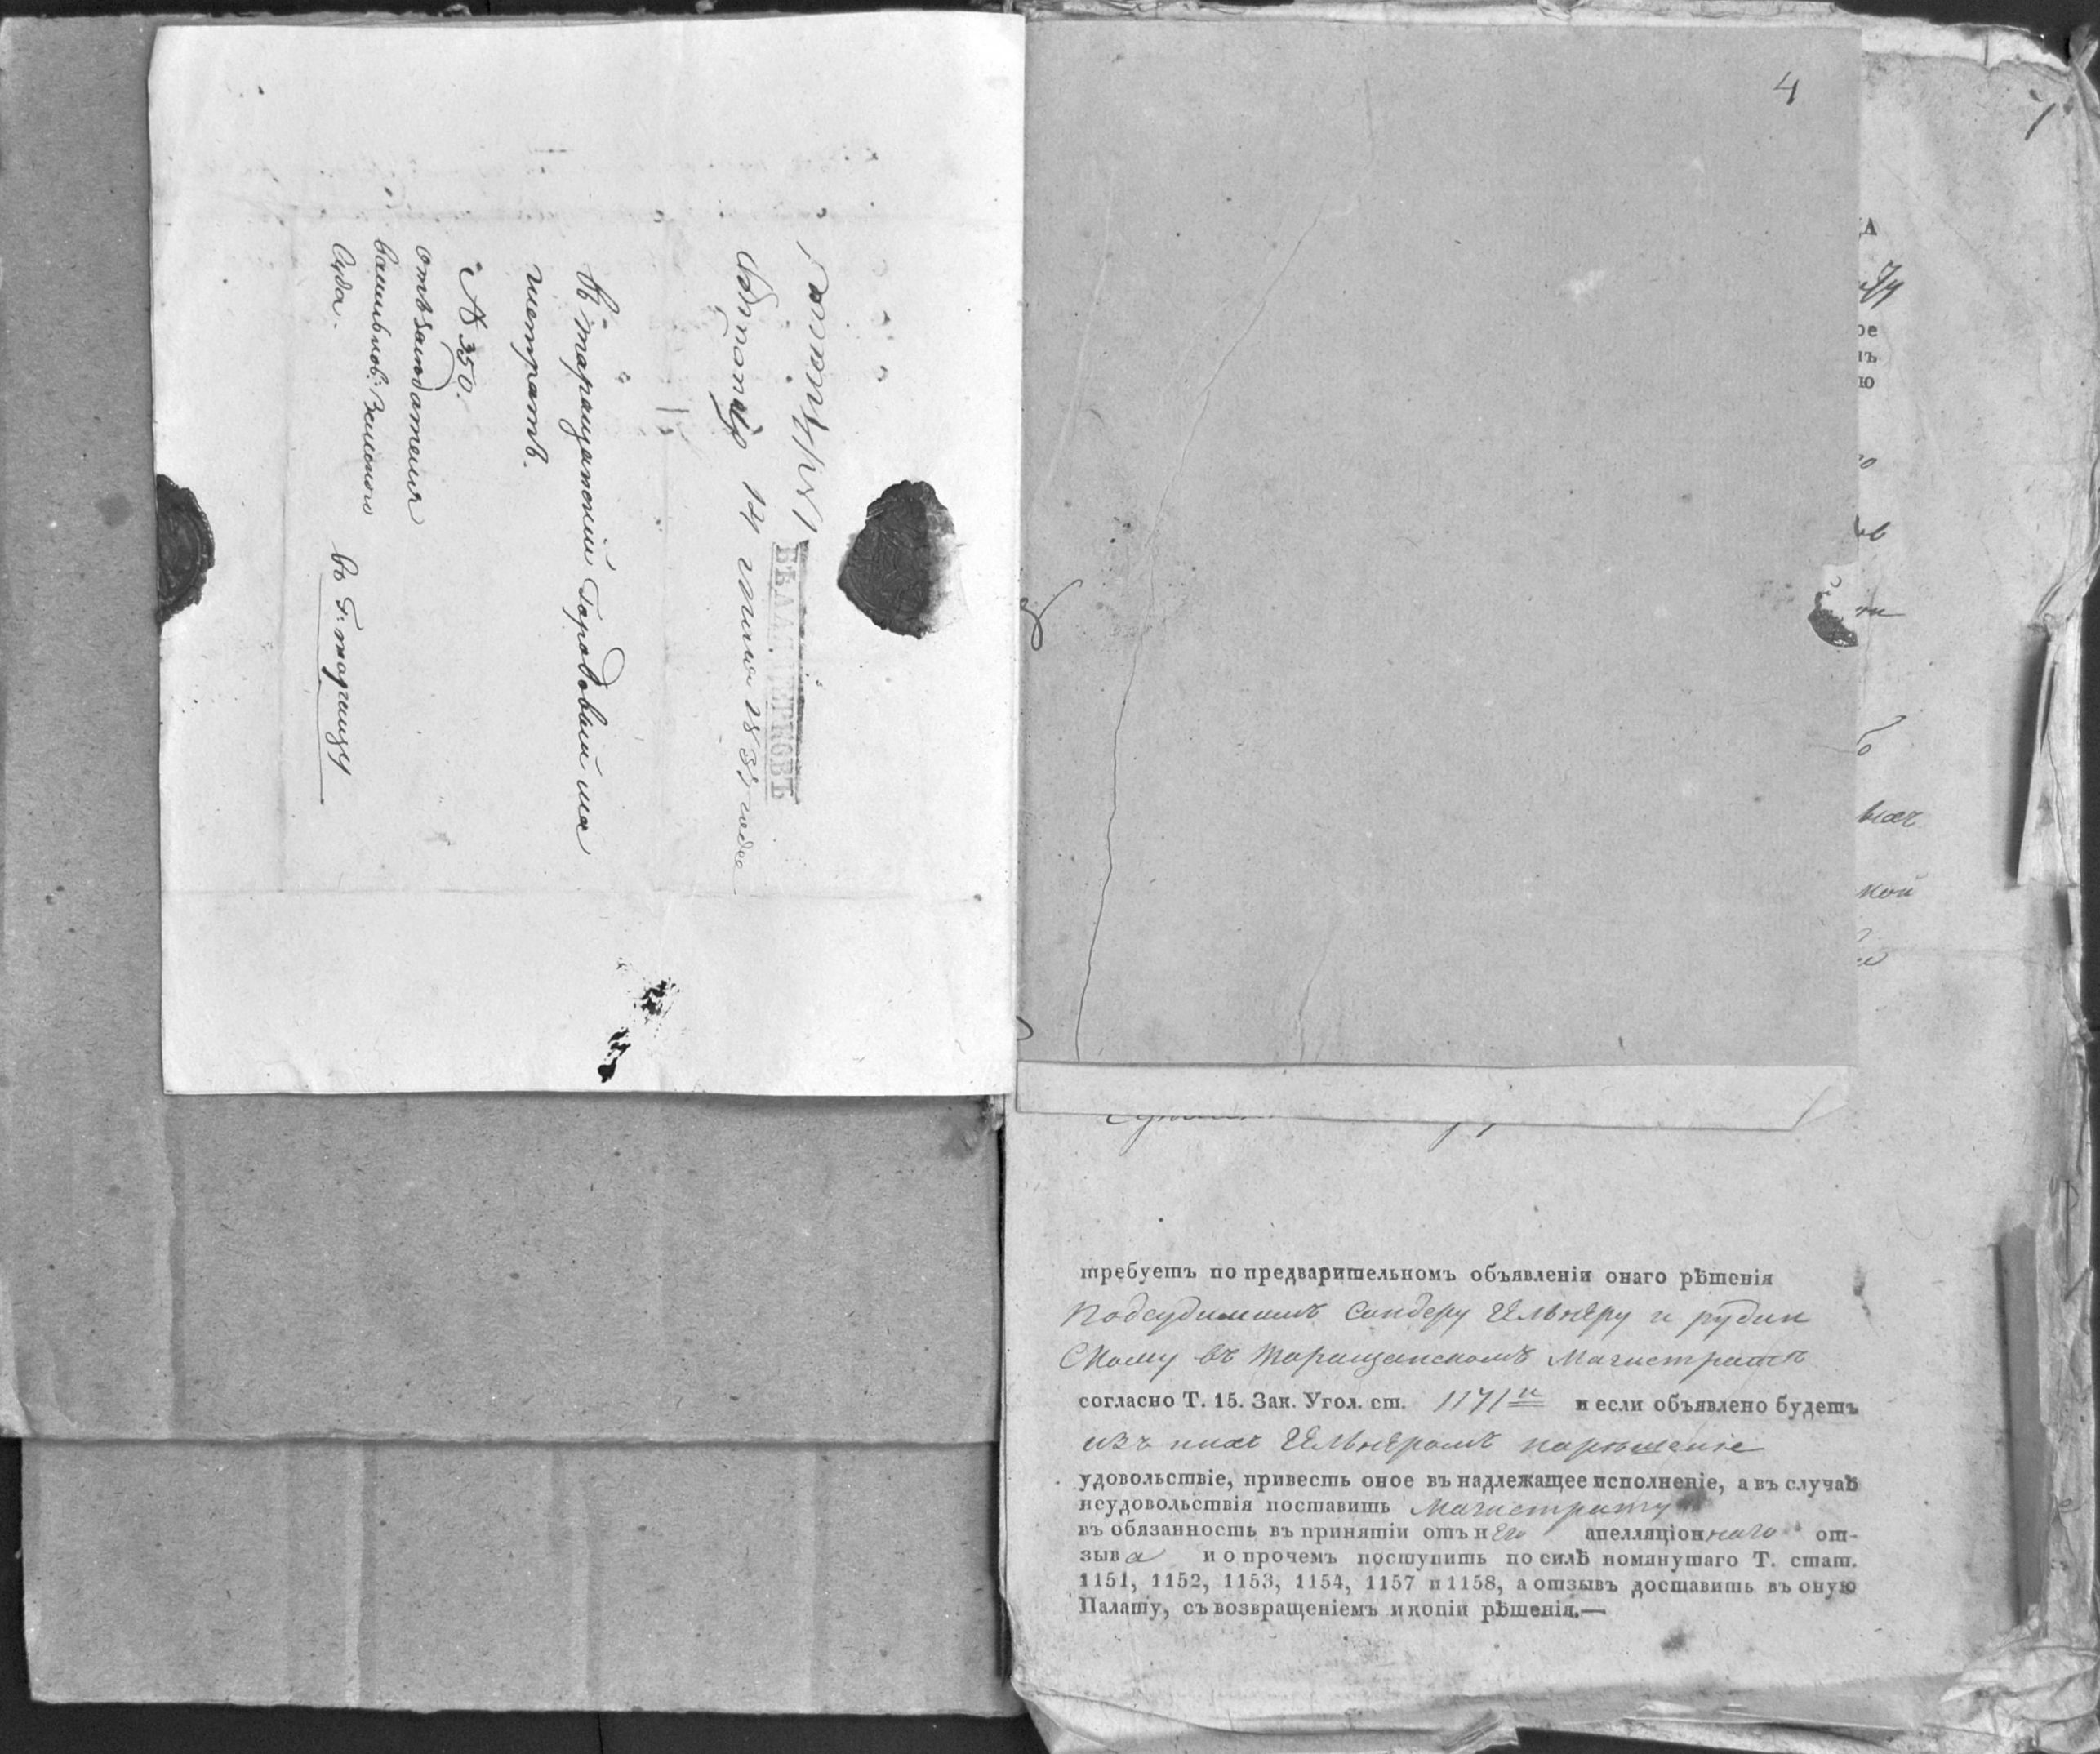 Получ:
БѢЛАЯ ЦЕРКОВЬ
12 1839 года
въ таращанскій Городовый ма
гистратъ.
№ 350.
отъ засѣдателя
васильков: Земского
Суда.
въ Г: таращу
4
требуетъ по предварительномъ объявленіи онаго рѣшенія
подсудимымъ Сандеру Цельнеру и рудин
скому въ таращанскомъ магистратѣ
согласно Т. 15. Зак. Угол. ст. 1171й и если объявлено будетъ
изъ нихъ Цельнеромъ нарѣшеніе
удовольствіе, привесть оное въ надлежащее исполненіе, а въ случаѣ
неудовольствія поставить магистрату
въ обязанность въ принятіи отъ него апелляціоннаго от-
зыва и о прочемъ поступить по силѣ помянутаго Т. стат.
1151, 1152, 1153, 1154, 1157 и 1158, а отзывъ доставить въ оную
Палату, съ возвращеніемъ и копіи рѣшенія.—